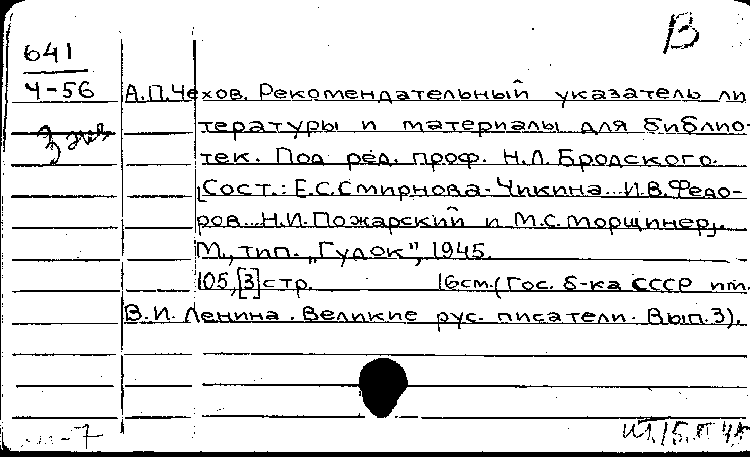 В
641
Ч-56
3 экз
А.П.Чехов. Рекомендательный указатель ли
тературы и материалы для библио-
тек. Под ред. проф. Н.Л.Бродского.
[Сост.: Е.С.Смирнова-Чикина... И.В.Федо-
ров... Н.И.Пожарский и М.С.Морщинер].
М., тип. „Гудок", 1945.
105,[3]стр. 16см.(Гос. б-ка СССР им.
В.И. Ленина. Великие рус. писатели. Вып.3).